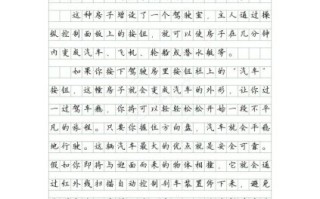 这种房子增设了一个驾驶室，主人通过操
纵控制面板上的按钮，就可以使房子在几分钟
内变成汽车、飞机、轮船或潜水艇等。
如果你按下驾驶房里按钮社上的“汽车”
按钮，这幢房子就会变成汽车的外形，让你过
一过驾车瘾，你将可以轻轻松松开始一段不平
凡的旅程。只要你握住方向盘，汽车就会平稳
地行驶。这辆汽车最大的优点就是安全可靠。
假如你即将与迎面而来的物体相撞，它就会通
过红外线扫描自动控制刹车装置停下来，避免